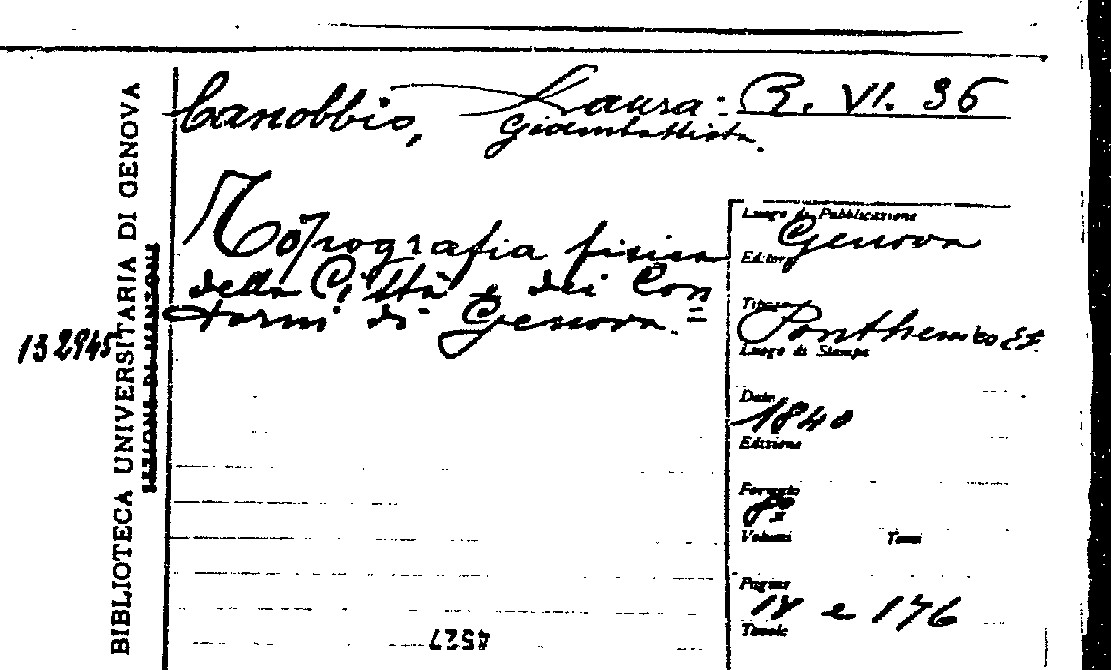 Canobbio, Laura: R. VI. 36
Giambattista.
Topografia fisica
della Città e dei Con
torni di Genova. =
Luogo di Pubblicazione
Genova
Editore
Tipografo
Ponthenier Ed.
Luogo di Stampa
Data
1840
Edizione
Formato
8º
Volumi Tomi
Pagine
IV e 176
Tavole
132945
BIBLIOTECA UNIVERSITARIA DI GENOVA
4527